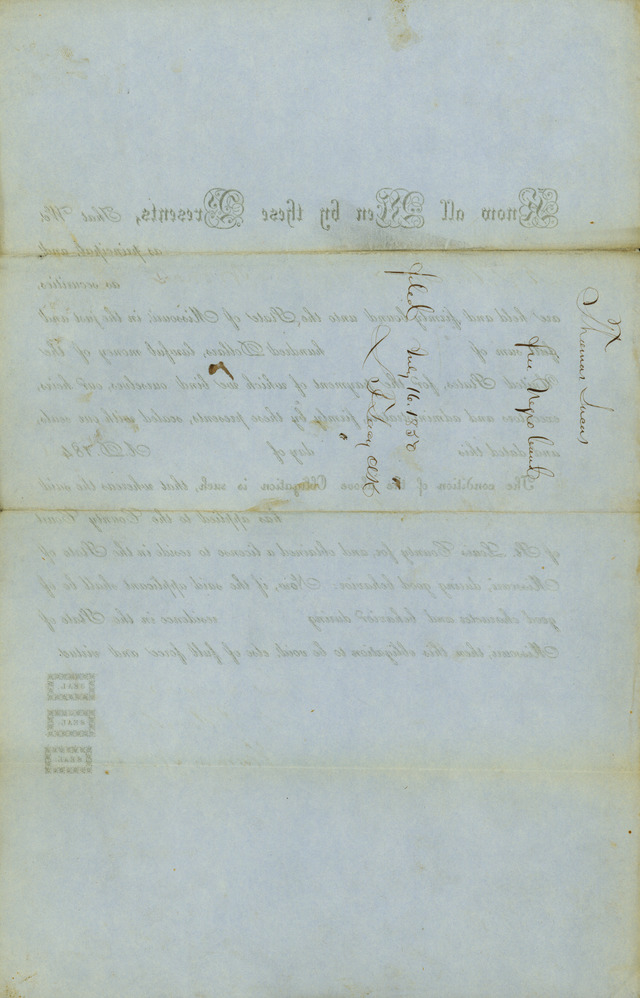 Thomas Lucas
free Negro bond
filed July 16. 1850
Clk
Know all Men by these Presents, That We
as principal, and
as securities,
are held and firmly bound unto the State of Missouri, in the just and
full sum of hundred Dollars, lawful money of the
United States, for the payment of which we bind ourselves, our heirs,
executors and administrators, firmly by these presents, sealed with our seals,
and dated this day of A.D. 184
The condition of the above Obligation is such, that whereas the said
has applied to the County Court
of St. Louis County for, and obtained a license to reside in the State of
Missouri, during good behavior: Now, if the said applicant shall be of
good character and behavior during residence in the State of
Missouri, then this obligation to be void, else of full force and virtue.
SEAL.
SEAL.
SEAL.